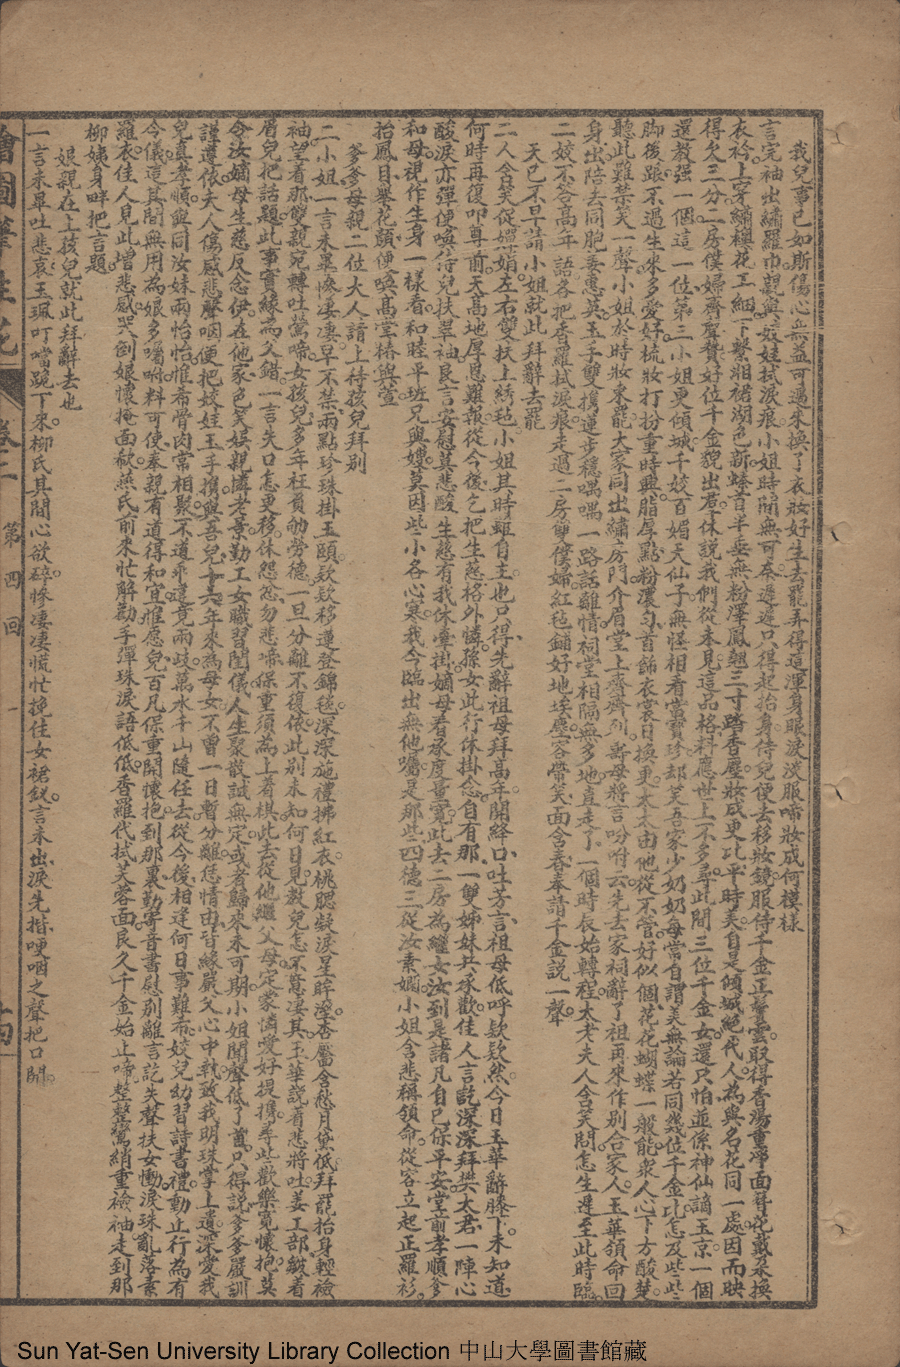 我兒事已如斯傷心無益可過來換了衣妝好生去罷弄得這渾身眼淚淡服啼妝成何模樣
言完袖出繡羅巾親與姣娃拭淚痕小姐時間無可奈遲遲只得起抬身侍兒便去移妝鏡服侍千金正鬢雲取得香湯重淨面簪花戴朶換
衣衿上穿繡襖花三細下繫湘裙湖色新螓首半垂無粉澤鳳翹三寸踏香塵妝成更比平時美自是傾城絕代人為與名花同一處因而映
得欠三分二房僕婦齊聲贊好位千金貌出君休說我們從未見這品格料應世上不多尋此間三位千金女還只怕並係神仙謫玉京一個
還教強一個這一位第三小姐更傾城千姣百媚天仙子無怪相看當寶珍却笑吾家少奶奶每常自謂美無論若同幾位千金比怎及些些
脚後跟不過生來多愛好梳妝打扮重時興脂厚點粉濃勻首飾衣裳日換更太太由他從不管好似個花花蝴蝶一般能眾人心下方酸楚
聽此難禁笑一聲小姐於時妝束罷大家同出繡房門介眉堂上齊齊列壽母將言吩咐云先去家祠辭了祖再來作別合家人玉華領命回
身出陪去同胞妻惠英玉手雙攜蓮步穩喁喁一路話離情祠堂相隔無多地直走了一個時辰始轉程太老夫人含笑問怎生遲至此時臨
二姣不答高年語各把香羅拭淚痕走過二房雙僕婦紅毡鋪好地埃塵容帶笑面含春奉請千金說一聲
天已不早請小姐就此拜辭去罷
二人含笑促嬋娟左右雙扶上綉毡小姐其時難自主也只得先辭祖母拜高年開絳口吐芳言祖母低呼欵欵然今日玉華辭膝下未知道
何時再復叩尊前天高地厚恩難報從今後乞把生慈格外憐孫女此行休掛念自有那一雙姊妹共承歡佳人言訖深深拜樊太君一陣心
酸淚亦彈便喚侍兒扶翠袖良言安慰莫悲酸生慈有我休牽掛嫡母看承度量寬此去二房為繼女汝到是諸凡自己保平安堂前孝順爹
和母視作生身一樣看和睦平班兄與嫂莫因些小各心寒我今臨出無他囑是那些四德三從汝素嫻小姐含悲稱領命從容立起正羅衫
抬鳳目舉花顏便喚高堂椿與萱
爹爹母親二位大人請上待孩兒拜別
二小姐一言未畢慘淒淒早不禁兩點珍珠掛玉頤欵欵移蓮登錦毯深深施禮拂紅衣桃腮凝淚星眸瀅杏靨含愁月黛低拜罷抬身輕襝
袖望着那雙親宛轉吐鶯啼女孩兒多年枉負劬勞德一旦分離不復依此別未知何日見教兒怎不慕淒其玉華說着悲將吐姜工部皺着
眉兒把話題此事實緣為父錯一言失口怎更移休怨怨勿悲啼保重須為上着棋此去從他繼父母定蒙憐愛好提攜尋些歡樂寬懷抱莫
令汝嫡母生慈反念伊在他家色笑娛親憐老景勤工女職習閨儀人生聚散誠無定或者歸來未可期小姐聞聲低了首只得説爹爹嚴訓
謹遵依夫人傷感悲聲咽便把姣娃玉手攜與吾兒十六年來為母女不曾一日暫分離恁情由皆緣嚴父心中執致我明珠掌上遺深愛我
兒真孝順與同汝妹兩怡怡惟希骨肉常相聚不道乖違竟兩歧萬水千山隨任去從今後相逢何日事難希姣兒幼習詩書禮動止行為有
令儀這其間無用為娘多囑咐料可使奉親有道得和宜惟愿兒百凡保重開懷抱到那裏勤寄音書慰別離言訖失聲扶女慟淚珠亂落素
羅衣佳人見此增悲感哭倒娘懷掩面欷樊氏前來忙解勸手彈珠淚語低低香羅代拭芙蓉面良久千金始止啼整整鸞綃重襝袖走到那
柳姨身畔把言題
娘親在上孩兒就此拜辭去也
一言未畢吐悲哀玉珮叮噹跪下來柳氏其間心欲碎慘淒淒慌忙挽住女裙釵言未出淚先揩哽咽之聲把口開
繪圖筆生花 卷二 第四回 一 十四
Sun Yat-Sen University Library Collection 中山大學圖書館藏